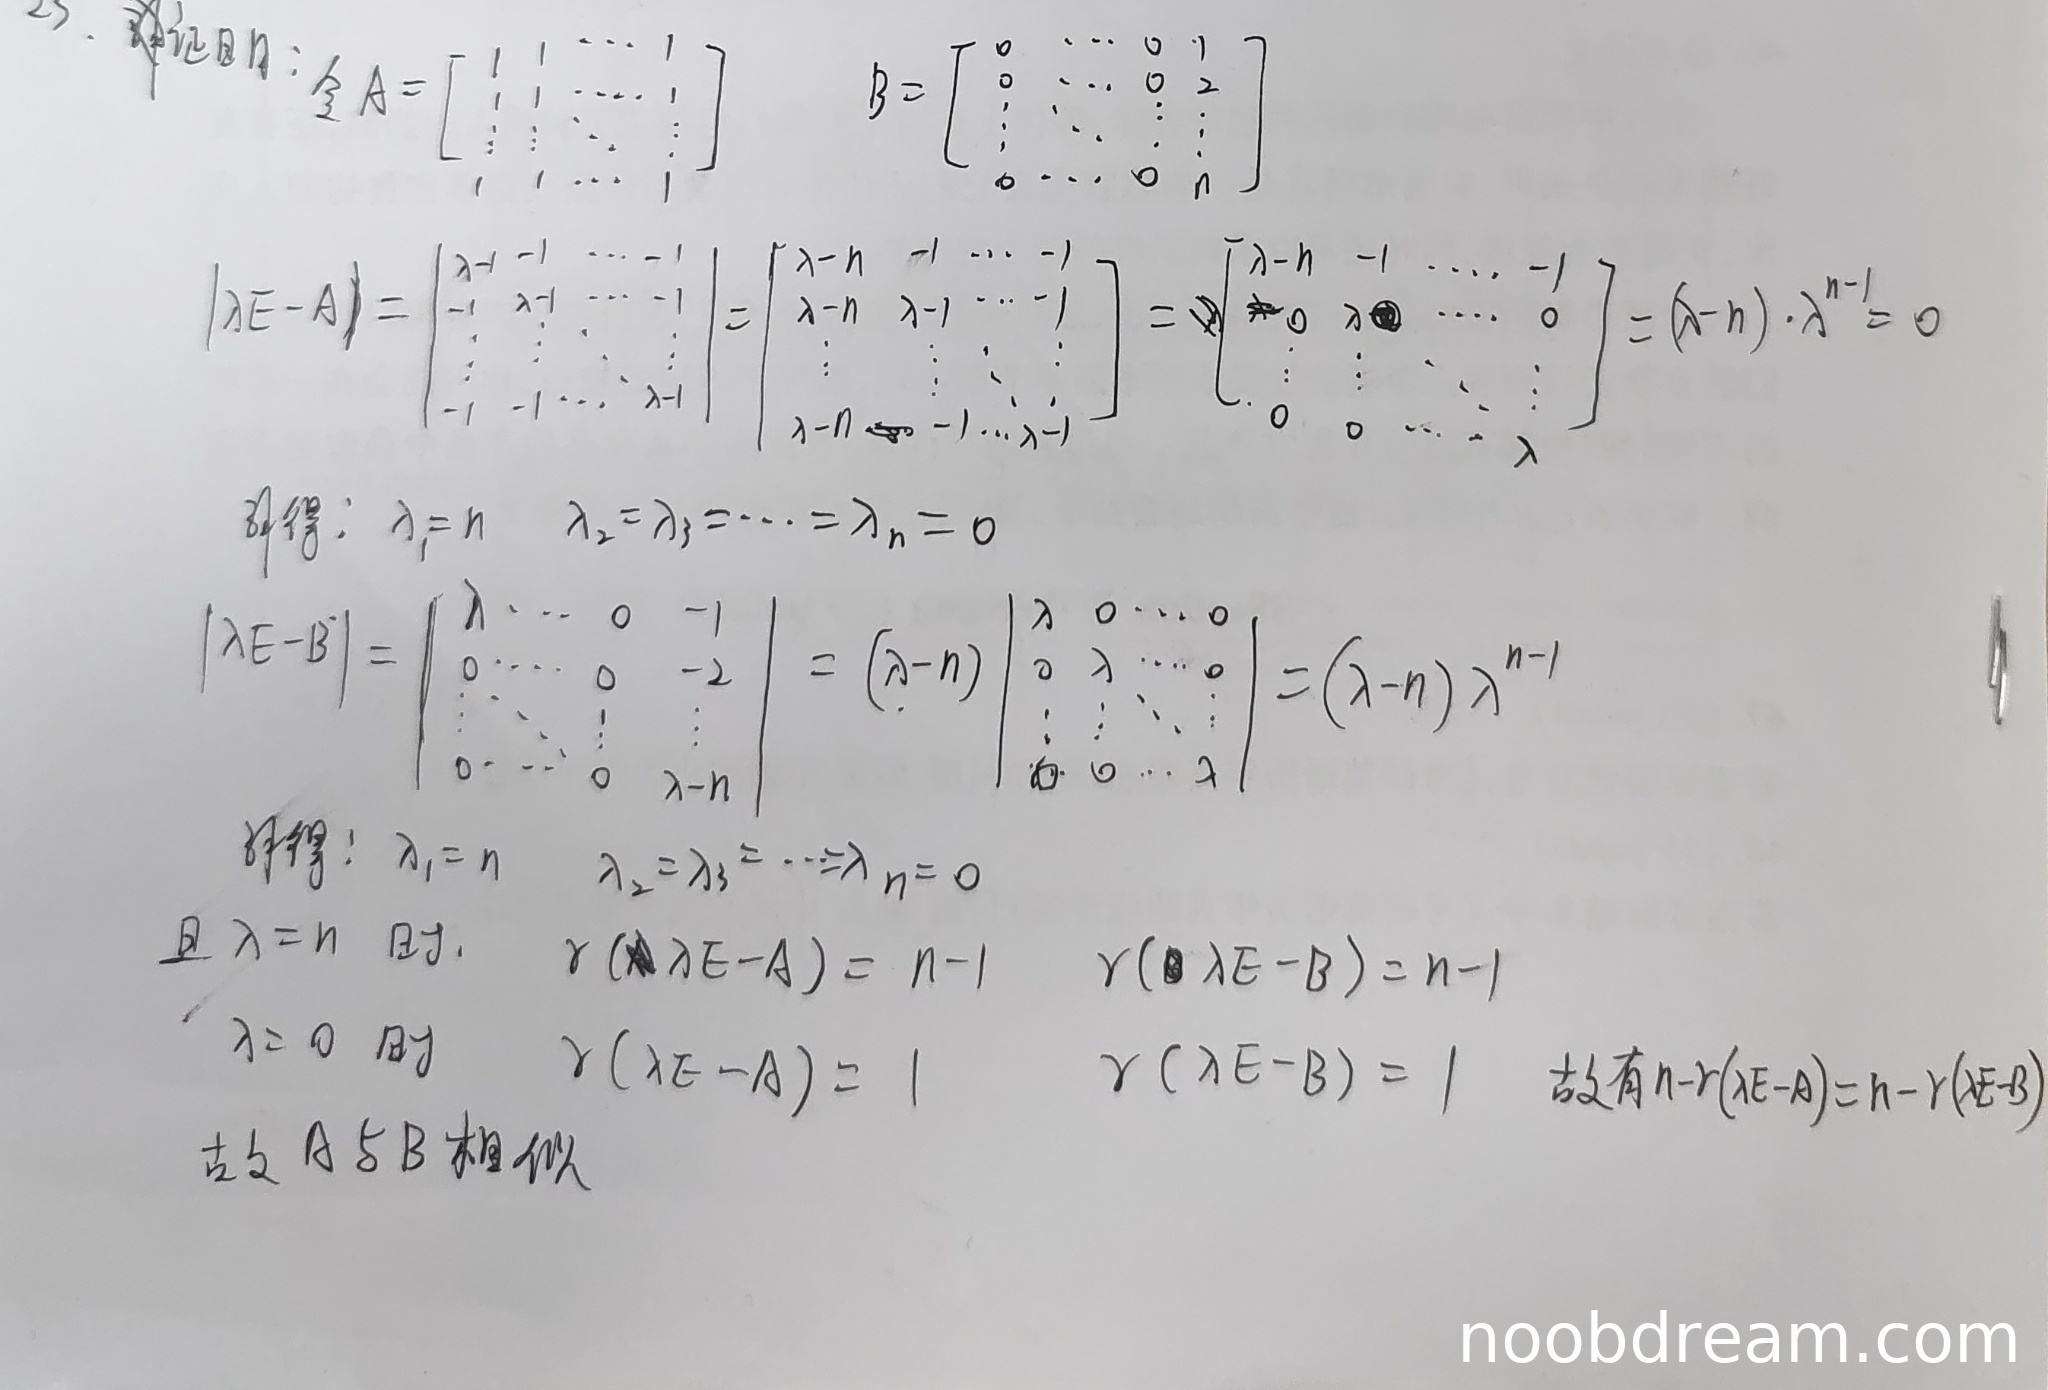 23. 证明：令 A = [1 1 ... 1; 1 1 ... 1; ⋮ ⋮ ⋱ ⋮; 1 1 ... 1] B = [0 ... 0 1; 0 ... 0 2; ⋮ ⋱ ⋮ ⋮; 0 ... 0 n]
|λE-A| = |λ-1 -1 ... -1; -1 λ-1 ... -1; ⋮ ⋮ ⋱ ⋮; -1 -1 ... λ-1| = [λ-n -1 ... -1; λ-n λ-1 ... -1; ⋮ ⋮ ⋱ ⋮; λ-n -1 ... λ-1] = [λ-n -1 .... -1; 0 λ .... 0; ⋮ ⋮ ⋱ ⋮; 0 0 ... λ] = (λ-n)·λ^{n-1} = 0
解得: λ₁=n λ₂=λ₃=...=λₙ=0
|λE-B| = |λ ... 0 -1; 0 .... 0 -2; ⋮ ⋱ ⋮ ⋮; 0 ... 0 λ-n| = (λ-n) |λ 0 ... 0; 0 λ .... 0; ⋮ ⋮ ⋱ ⋮; 0 0 ... λ| = (λ-n) λ^{n-1}
解得: λ₁=n λ₂=λ₃=...=λₙ=0
且 λ=n 时. r(λE-A) = n-1 r(λE-B) = n-1
λ=0 时 r(λE-A) = 1 r(λE-B) = 1 故有 n-r(λE-A)=n-r(λE-B)
故 A与B 相似
noobdream.com